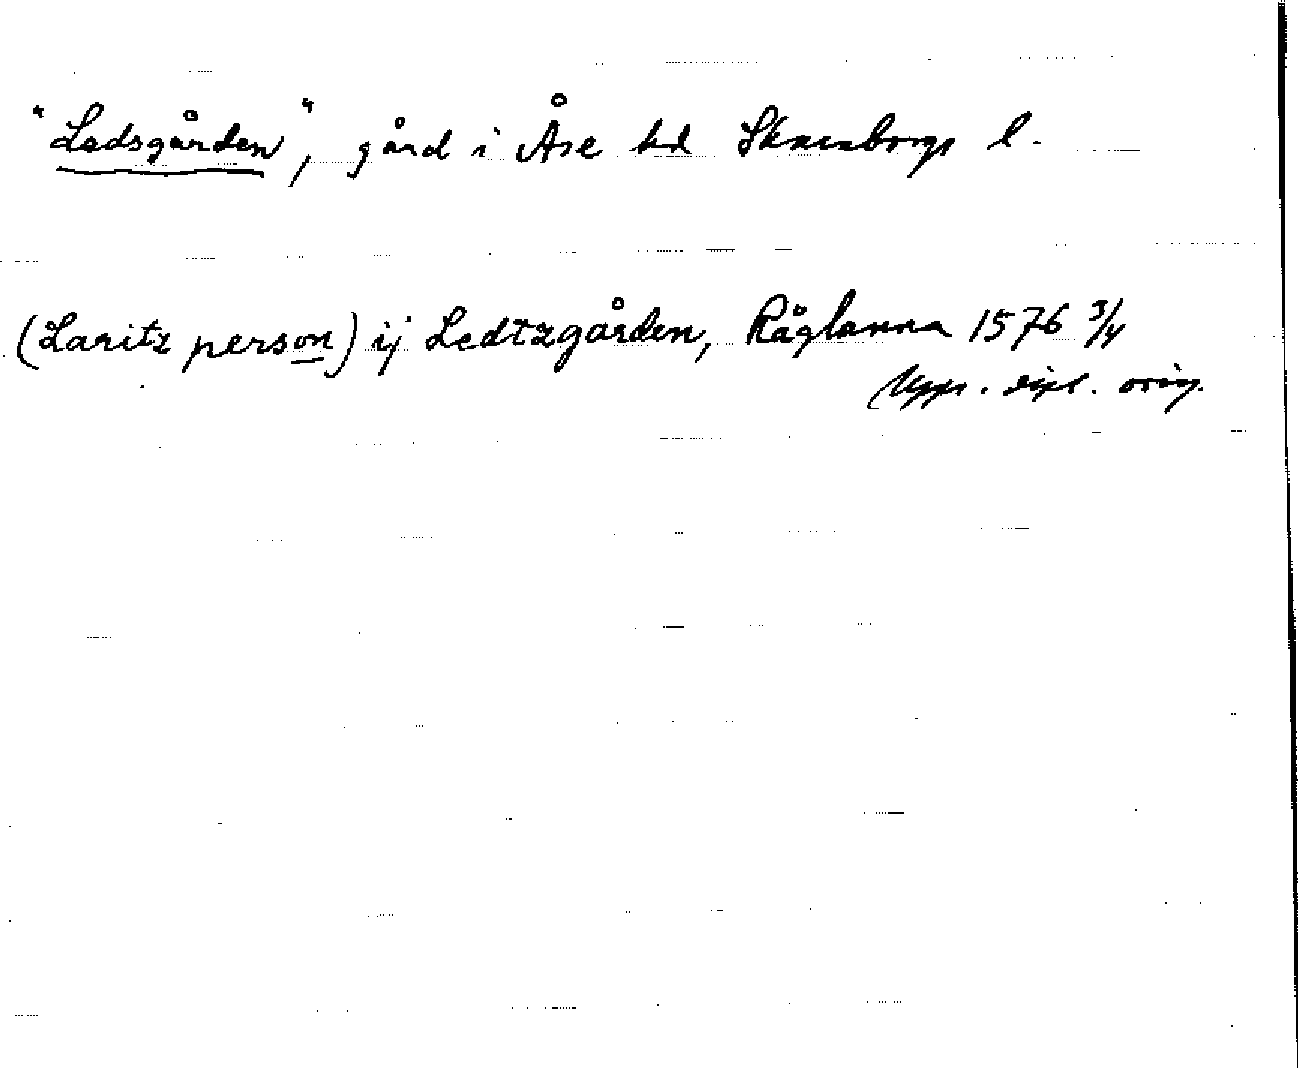 "Ledsgården", gård i Åse hd Skaraborgs l.
(Laritz person) ij Ledtzgården, Råglanna 1576 3/4
Upps. dipl. orig.